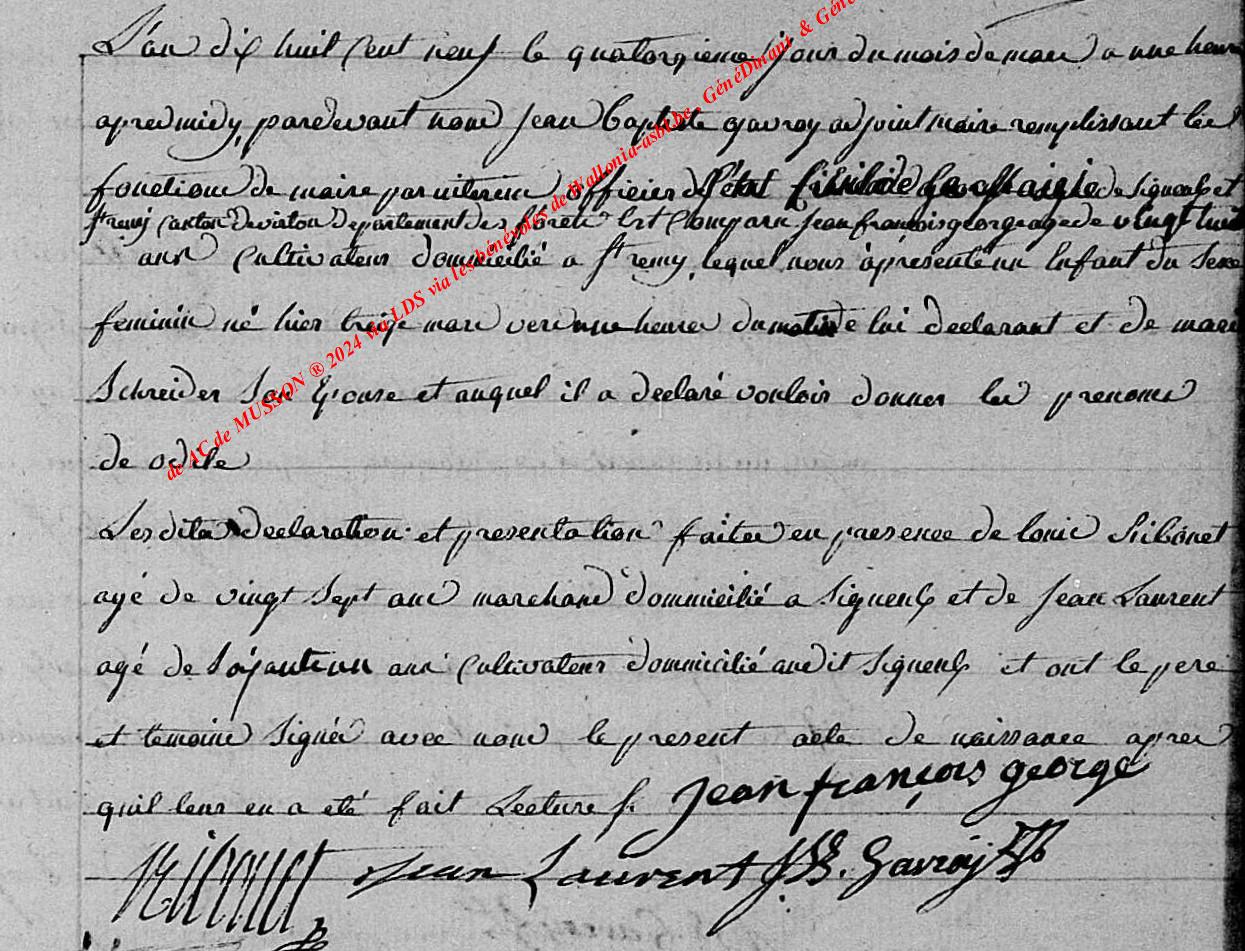 L'an dix huit cent neuf le quatorzieme jour du mois de mars a une heure
apres midy, pardevant nous jean baptiste gavroy adjoint maire remplissant les
fonctions de maire par interim officier de l'état civil de de signeulx et
st remy canton de virton departement des forêts Est Comparu jean françois george agé de vingt huit
ans Cultivateur dommicilié a st remy, lequel nous a presenté un Enfant du Sexe
feminin né hier treize mars vers une heures du matin de lui declarant et de marie
Schreider Son Epouse et auquel il a declaré vouloir donner les prenoms
de odile
Lesdites declaration et presentation faites en presence de louis Ribonet
agé de vingt Sept ans marchand dommicilié a Signeulx et de Jean Laurent
agé de Soixante un ans Cultivateur dommicilié audit Signeulx et ont le pere
et temoins Signés avec nous le present acte de naissance apres
quil leur en a eté fait Lecture /.
Jean françois george
Jean Laurent JB. Gavroy
de AC de MUSSON ® 2024 via LDS via les bénévoles de Wallonia-asbl.be, GénéDinant & Géné